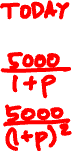 TODAY
5000
1+p
5000
(1+p)²